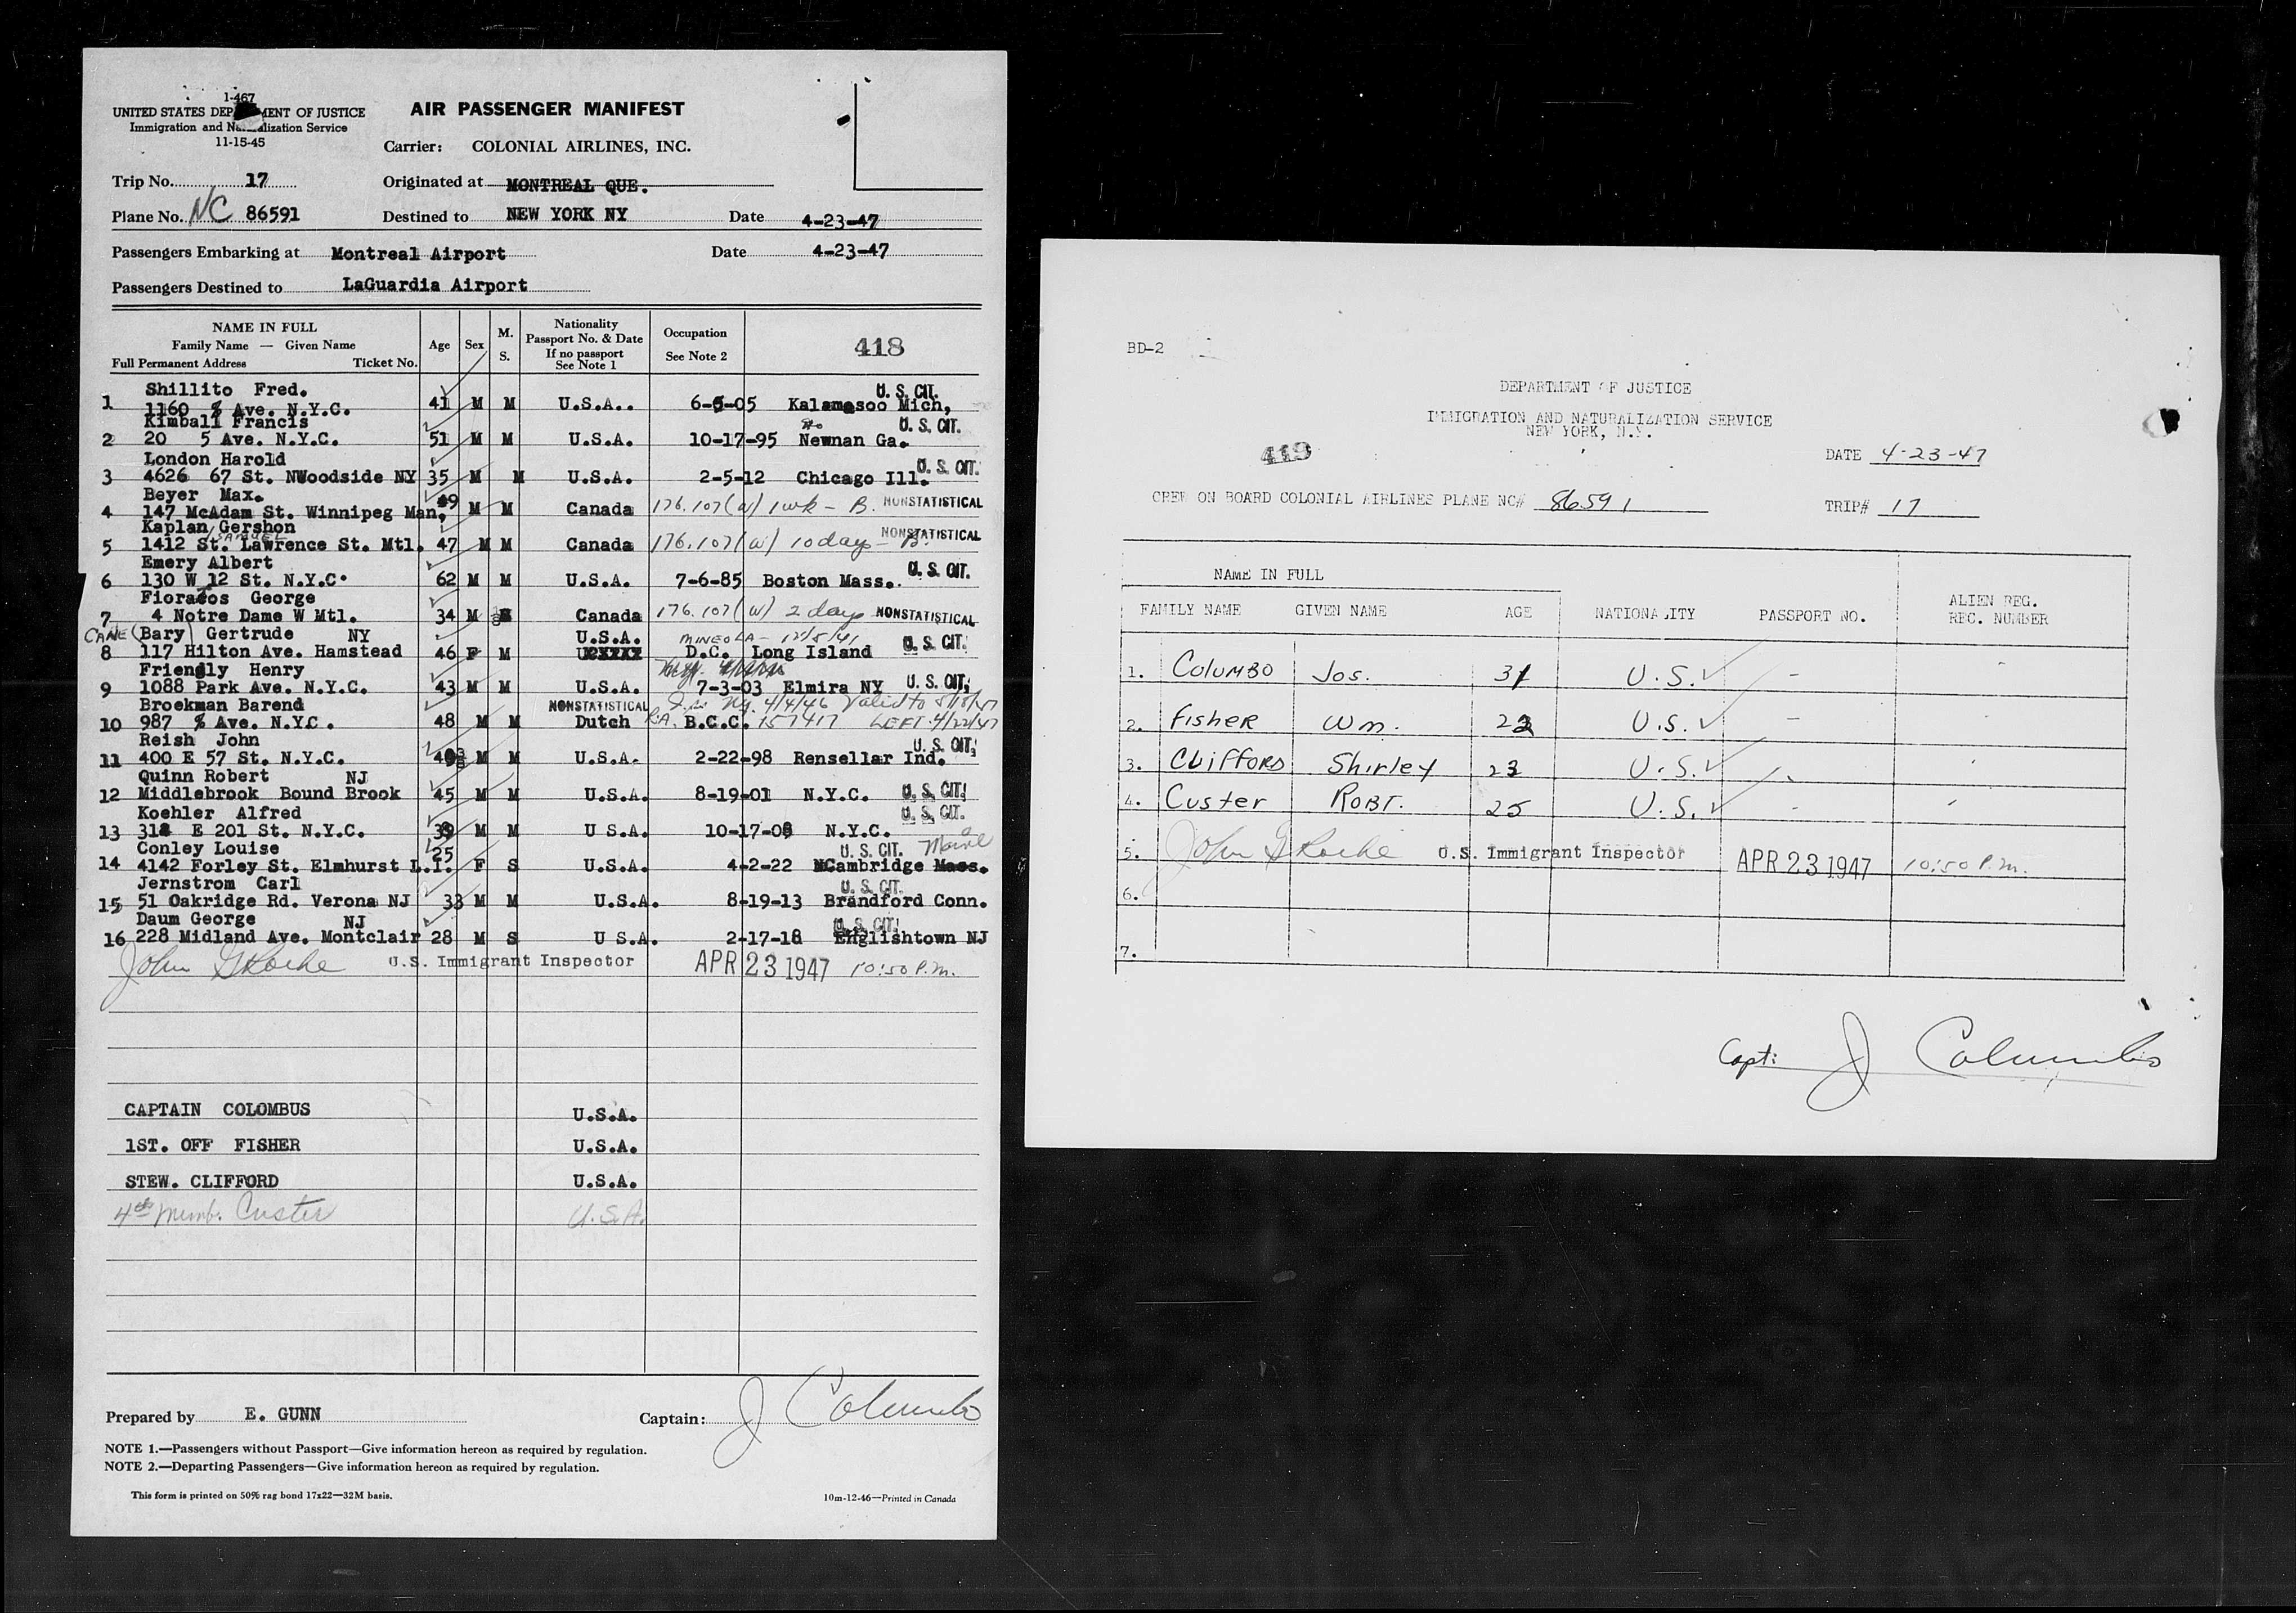 1-467
UNITED STATES DEP MENT OF JUSTICE
Immigration and Naturalization Service
11-15-45
AIR PASSENGER MANIFEST
Carrier: COLONIAL AIRLINES, INC.
Trip No. 17
Originated at MONTREAL QUE.
Plane No. NC 86591
Destined to NEW YORK NY Date 4-23-47
Passengers Embarking at Montreal Airport Date 4-23-47
Passengers Destined to LaGuardia Airport
NAME IN FULL
Family Name — Given Name
Full Permanent Address Ticket No.
Age
Sex
M.
S.
Nationality
Passport No. & Date
If no passport
See Note 1
Occupation
See Note 2
418
Shillito Fred. U. S. CIT.
1 1160 % Ave. N.Y.C. 41 M M U.S.A.. 6-6-05 Kalamasoo Mich,
Kimball Francis U. S. CIT.
2 20 5 Ave. N.Y.C. 51 M M U.S.A. 10-17-95 Newnan Ga.
London Harold U. S. CIT.
3 4626 67 St. NWoodside NY 35 M M U.S.A. 2-5-12 Chicago Ill.
Beyer Max.
4 147 McAdam St. Winnipeg Man. 49 M M Canada 176.107(W) 1 wk - B. NONSTATISTICAL
Kaplan Gershon
SAMUEL
5 1412 St. Lawrence St. Mtl. 47 M M Canada 176.107(W) 10 days - B. NONSTATISTICAL
Emery Albert
6 130 W 12 St. N.Y.C. 62 M M U.S.A. 7-6-85 Boston Mass. U. S. CIT.
Fioratos George
7 4 Notre Dame W Mtl. 34 M S Canada 176.107(W) 2 days NONSTATISTICAL
CANE (Bary) Gertrude NY U.S.A. MINEOLA - 12/5/41
8 117 Hilton Ave. Hamstead 46 F M D.C. Long Island U. S. CIT.
Friendly Henry
9 1088 Park Ave. N.Y.C. 43 M M U.S.A. 7-3-03 Elmira NY U. S. CIT.
Broekman Barend NONSTATISTICAL 4/4/46 Valid to 5/18/47
10 987 % Ave. N.Y.C. 48 M M Dutch R.A. B.C.C. 157417 LEFT 4/22/47
Reish John U. S. CIT.
11 400 E 57 St. N.Y.C. 49 M M U.S.A. 2-22-98 Rensellar Ind.
Quinn Robert NJ
12 Middlebrook Bound Brook 45 M M U.S.A. 8-19-01 N.Y.C. U. S. CIT.
Koehler Alfred U. S. CIT.
13 318 E 201 St. N.Y.C. 39 M M U S.A. 10-17-08 N.Y.C.
Conley Louise U. S. CIT. Maine
14 4142 Forley St. Elmhurst L.I. 25 F S U.S.A. 4-2-22 Cambridge Mass.
Jernstrom Carl U. S. CIT.
15 51 Oakridge Rd. Verona NJ 33 M M U.S.A. 8-19-13 Brandford Conn.
Daum George NJ U. S. CIT.
16 228 Midland Ave. Montclair 28 M S U S.A. 2-17-18 Englishtown NJ
John G Roche U.S. Immigrant Inspector APR 23 1947 10:50 P.M.
CAPTAIN COLOMBUS U.S.A.
1ST. OFF FISHER U.S.A.
STEW. CLIFFORD U.S.A.
4th Memb. Custer U.S.A.
Prepared by E. GUNN Captain: J Columbo
NOTE 1.—Passengers without Passport—Give information hereon as required by regulation.
NOTE 2.—Departing Passengers—Give information hereon as required by regulation.
This form is printed on 50% rag bond 17x22—32M basis. 10m-12-46—Printed in Canada
BD-2
DEPARTMENT OF JUSTICE
IMMIGRATION AND NATURALIZATION SERVICE
NEW YORK, N.Y.
419
DATE 4-23-47
CREW ON BOARD COLONIAL AIRLINES PLANE NC# 86591 TRIP# 17
NAME IN FULL
FAMILY NAME GIVEN NAME AGE NATIONALITY PASSPORT NO. ALIEN REG.
REC. NUMBER
1. Columbo Jos. 31 U.S. -
2. Fisher Wm. 22 U.S. -
3. Clifford Shirley 23 U.S. -
4. Custer Robt. 25 U.S. -
5. John G Roche U.S. Immigrant Inspector APR 23 1947 10:50 P.M.
6.
7.
Capt: J Columbo